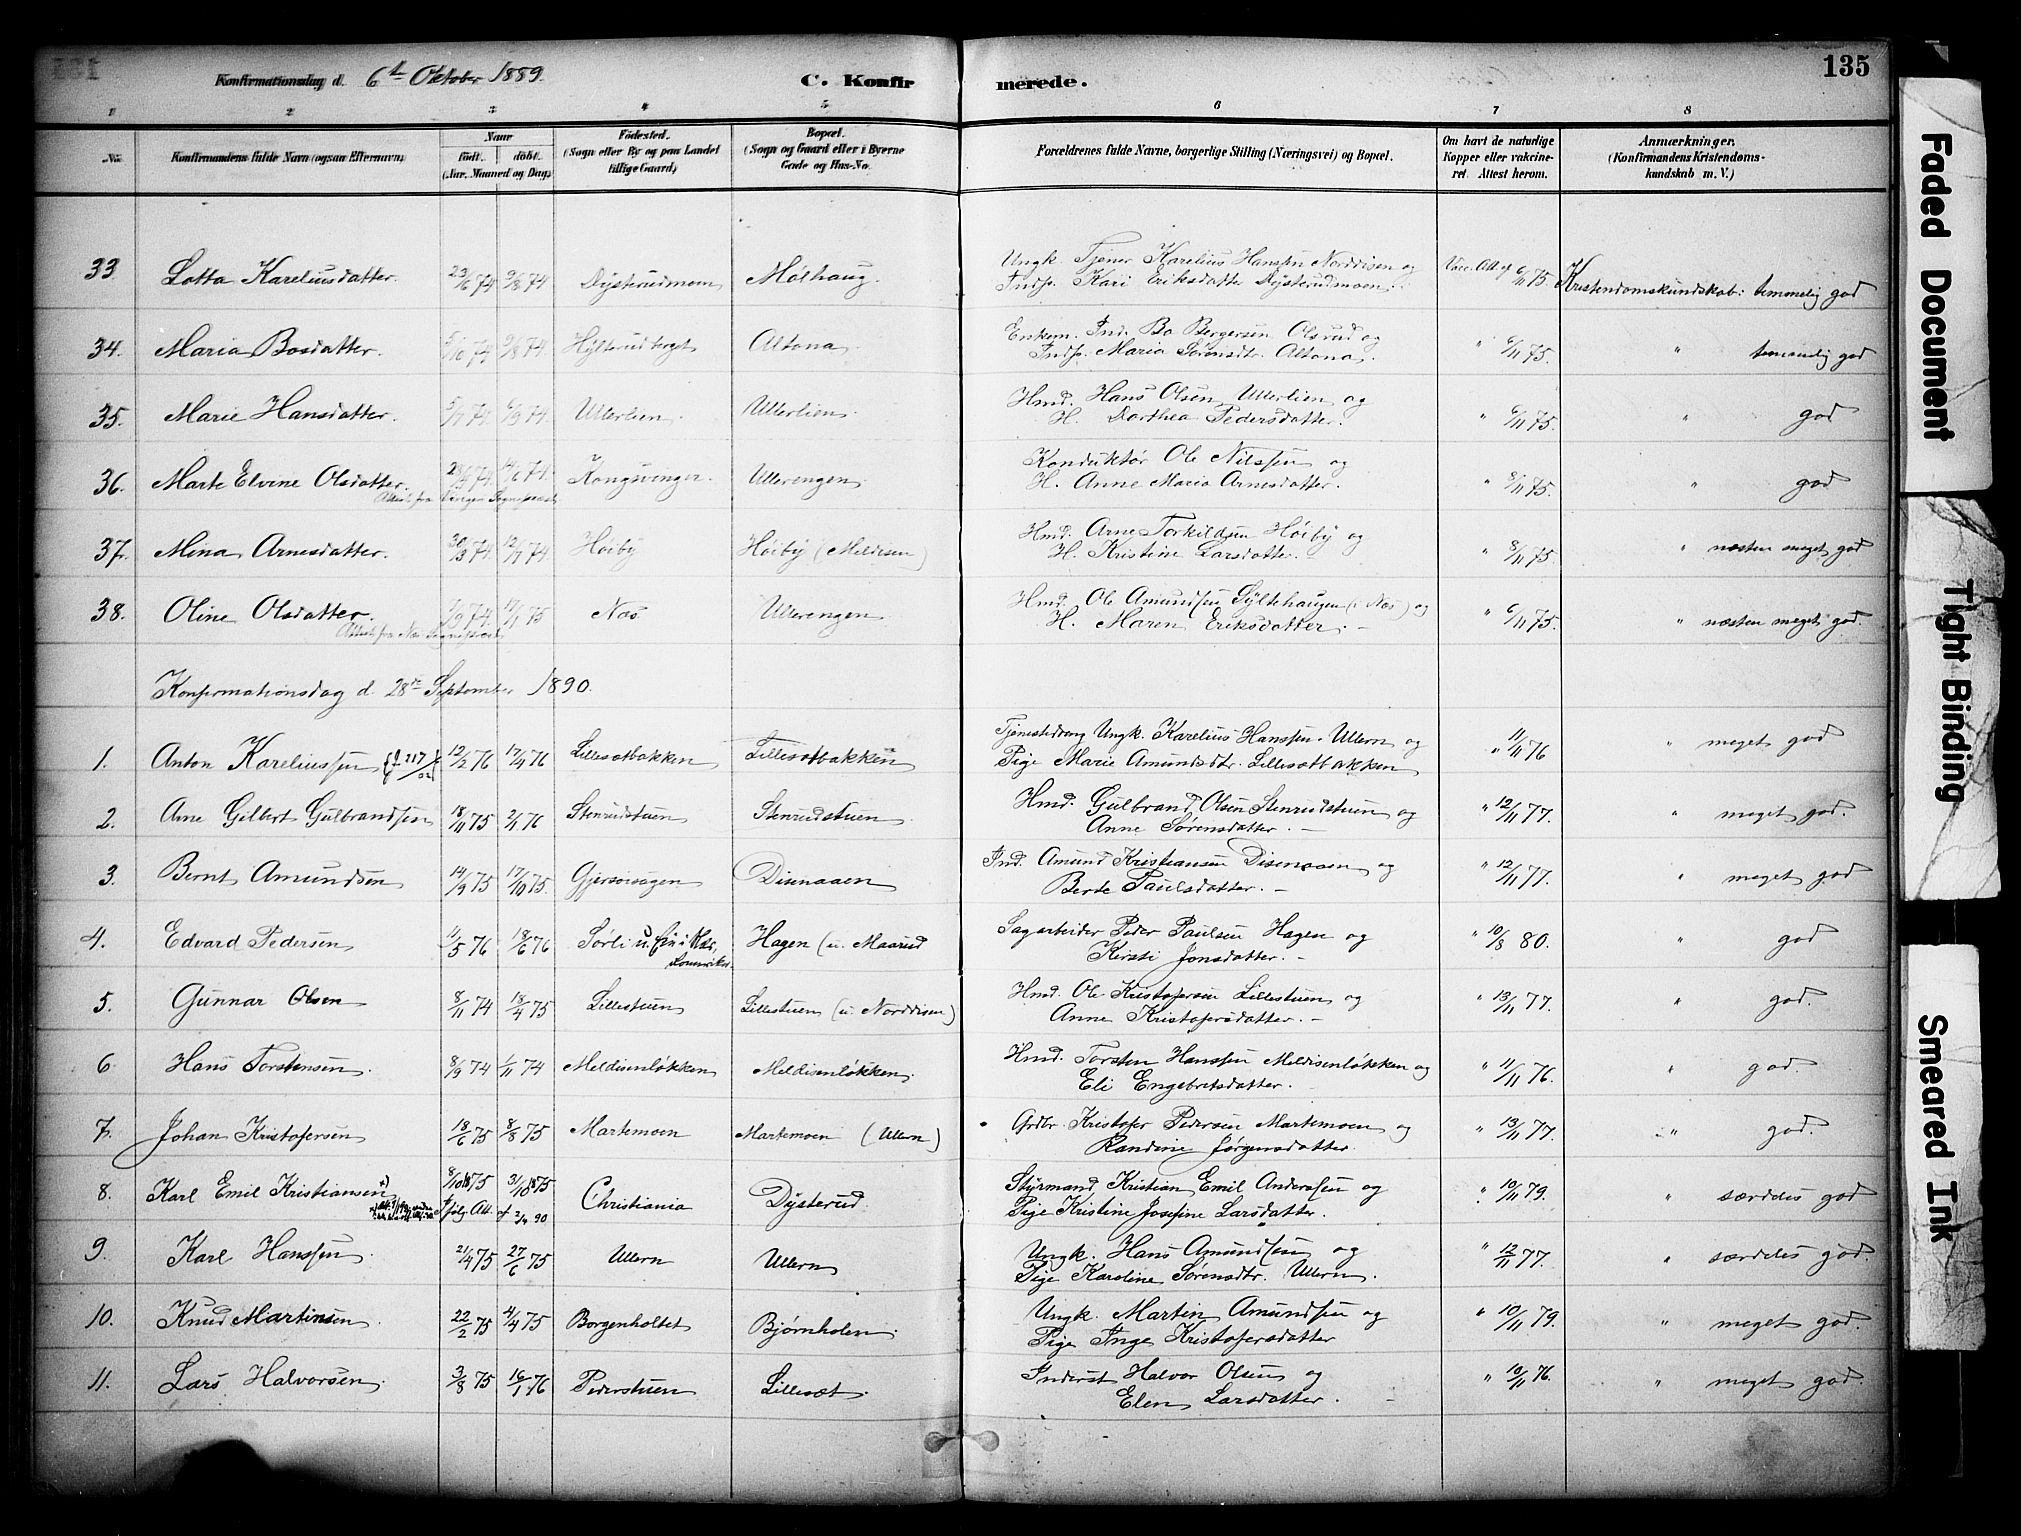 Konfirmationsdag d. 6te Oktober 1889.
C. Konfirmerede.
135
1 2 3 4 5 6 7 8
No.
Konfirmandens fulde Navn (ogsaa Efternavn)
Naar
født. døbt.
(Aar, Maaned og Dag)
Fødested.
(Sogn eller By og paa Landet
tillige Gaard)
Bopæl.
(Sogn og Gaard eller i Byerne
Gade og Hus-No.
Forældrenes fulde Navne, borgerlige Stilling (Næringsvei) og Bopæl.
Om havt de naturlige
Kopper eller vakcine-
ret. Attest herom.
Anmærkninger.
(Konfirmandens Kristendoms-
kundskab m. V.)
33 Lotta Kareliusdatter. 23/6 74 9/8 74 Dysterudmoen Mølhaug. Ungk. Tjener Karelius Hansen Norddisen og
Indp. Kari Eriksdatter Dysterudmoen. Vacc. Att. af 6/11 75 Kristendomskundskab: temmelig god
34. Maria Bosdatter. 9/8 74. Hylterudberget Altona. Enkem. Ind. Bo Bergersen Olsrud og
Indp. Maria Sørensdtr. Altona. " 6/11 75. " temmelig god
35. Marie Hansdatter. 5/7 74. 6/9 74. Ullerlien. Ullerlien. Hmd. Hans Olsen Ullerlien og
H. Dorthea Pedersdatter. " 6/11 75. " god
36. Marte Elvine Olsdatter. 74. 14/6 74. Kongsvinger. Ullerengen. Konduktør Ole Nilssen og
H. Anne Maria Arnesdatter. " 8/11 75. " god
Attest fra Vinger Sognepræst
37. Mina Arnesdatter. 30/3 74. 12/7 74 Høiby Høiby (Meldisen) Hmd. Arne Torkildsen Høiby og
H. Kristine Larsdatter. " 8/11 75. " næsten meget god
38. Oline Olsdatter. 7/9 74. 17/1 75 Næs Ullerengen. Hmd. Ole Amundsen Syltehaugen (i Næs) og
H. Maren Eriksdatter. " 6/11 75. " næsten meget god.
Attest fra Næs Sognepræst
Konfirmationsdag d. 28de September 1890.
1. Anton Kareliussen 12/2 76 17/4 76 Lillesætbakken Lillesætbakken Tjenestedreng Ungk. Karelius Hanssen Ullern og
Pige Marie Amundsdtr. Lillesætbakken " 11/11 76 " meget god
2. Arne Gilbert Gulbrandsen 18/11 75 2/4 76 Stenrudstuen Stenrudstuen. Hmd. Gulbrand Olsen Stenrudstuen og
Anne Sørensdatter. " 12/11 77. " meget god.
3. Bernt Amundsen 14/9 75 17/10 75. Gjersørsøgen Disenaaen Ind. Amund Kristiansen Disenaaen og
Berte Paulsdatter. " 12/11 77. " meget god
4. Edvard Pedersen 11/5 76 18/6 76 Sørli Hagen (u. Maarud Sagarbeider Peder Paulsen Hagen og
Kirsti Jonsdatter. " 10/8 80. " god
5. Gunnar Olsen 8/11 74 18/4 75 Lillestuen Lillestuen (u. Norddisen) Hmd. Ole Kristofersen Lillestuen og
Anne Kristofersdatter. " 13/11 77. " god.
6. Hans Torstensen. 8/9 74 1/11 74 Meldisenløkken Meldisenløkken. Hmd. Torsten Hanssen Meldisenløkken og
Eli Engebretsdatter. " 11/11 76. " god.
7. Johan Kristofersen 18/6 75 8/8 75 Martemoen Martemoen (Ullern) Grdbr. Kristofer Pedersen Martemoen og
Randine Jørgensdatter. " 13/11 77. " god.
8. Karl Emil Kristiansen 8/10 1875 31/10 1875 Christiania Dysterud. Styrmand Kristian Emil Andersen og
Pige Kristine Josefine Larsdatter. " 10/11 79. " særdeles god
ifølg. Att. af 2/4 90
9. Karl Hanssen 21/4 75 27/6 75 Ullern Ullern Ungk. Hans Amundsen og
Pige Karoline Sørensdtr. Ullern. " 12/11 77. " særdeles god.
10. Knud Martinsen 22/2 75 4/4 75 Borgenholtet Bjørnholen. Ungk. Martin Amundsen og
Pige Inge Kristofersdatter " 10/11 79. " meget god.
11. Lars Halvorsen 3/8 75 16/1 76 Pederstuen Lillesæt. Inderst Halvor Olsen og
Elen Larsdatter. " 10/11 76. " meget god.
Faded Document
Tight Binding
Smeared Ink